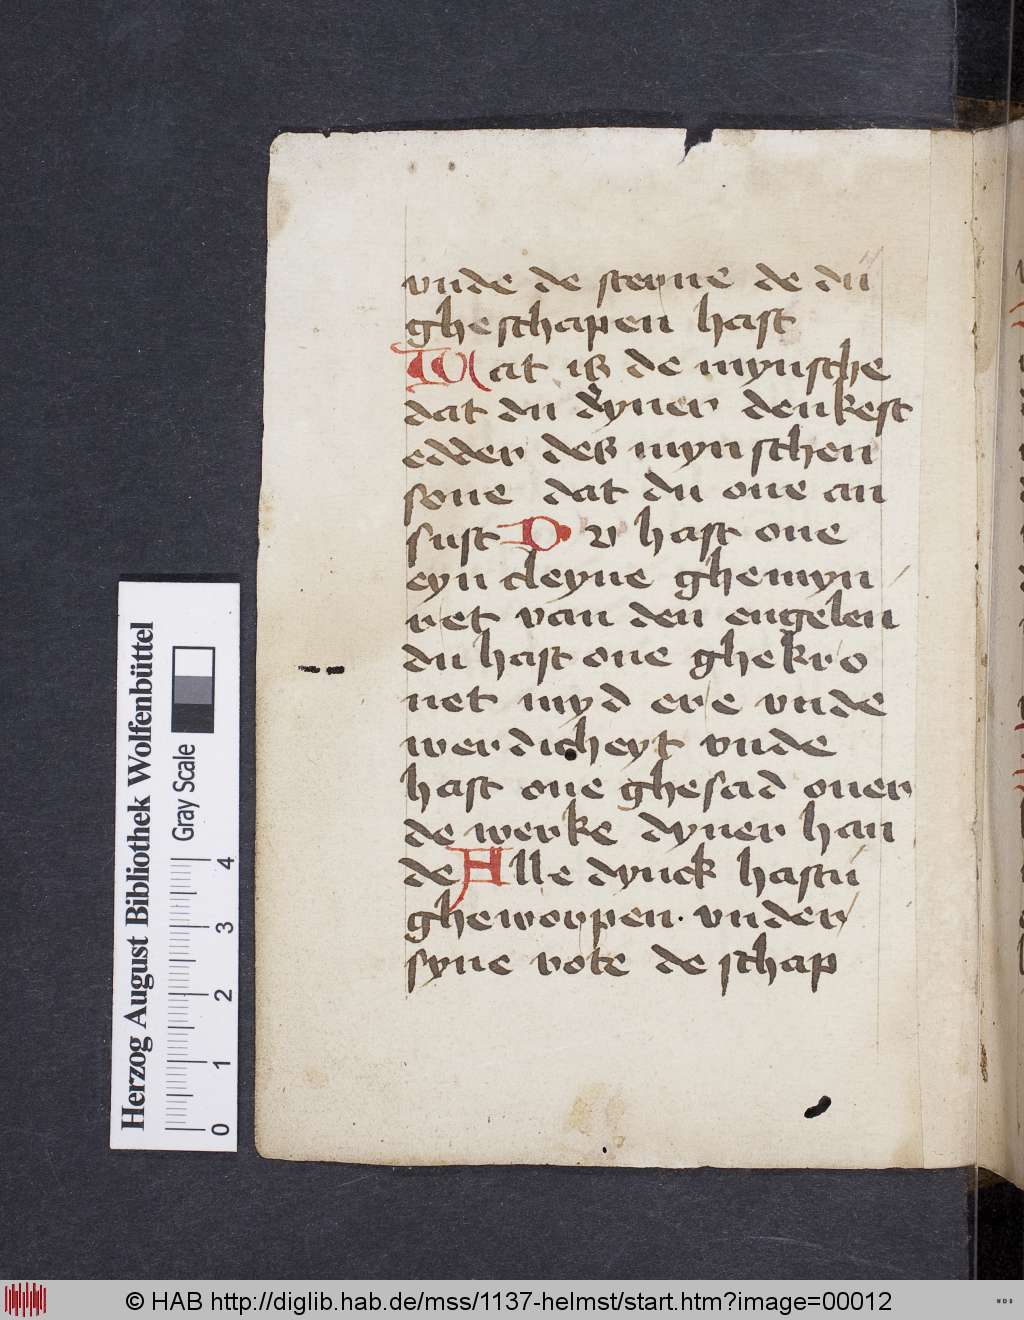 vnde de sterne de du
gheschapen hast
Wat is de mynsche
dat du dyner denkest
edder des mynschen
sone dat du one an
sust Du hast one
eyn cleyne ghemyn
ret van den engelen
du hast one ghekro
net myd ere vnde
werdicheyt vnde
hast one ghesad ouer
de werke dyner han
de Alle dynck hastu
gheworpen. vnder
syne vote de schap
Herzog August Bibliothek Wolfenbüttel
Gray Scale
0 1 2 3 4
© HAB http://diglib.hab.de/mss/1137-helmst/start.htm?image=00012